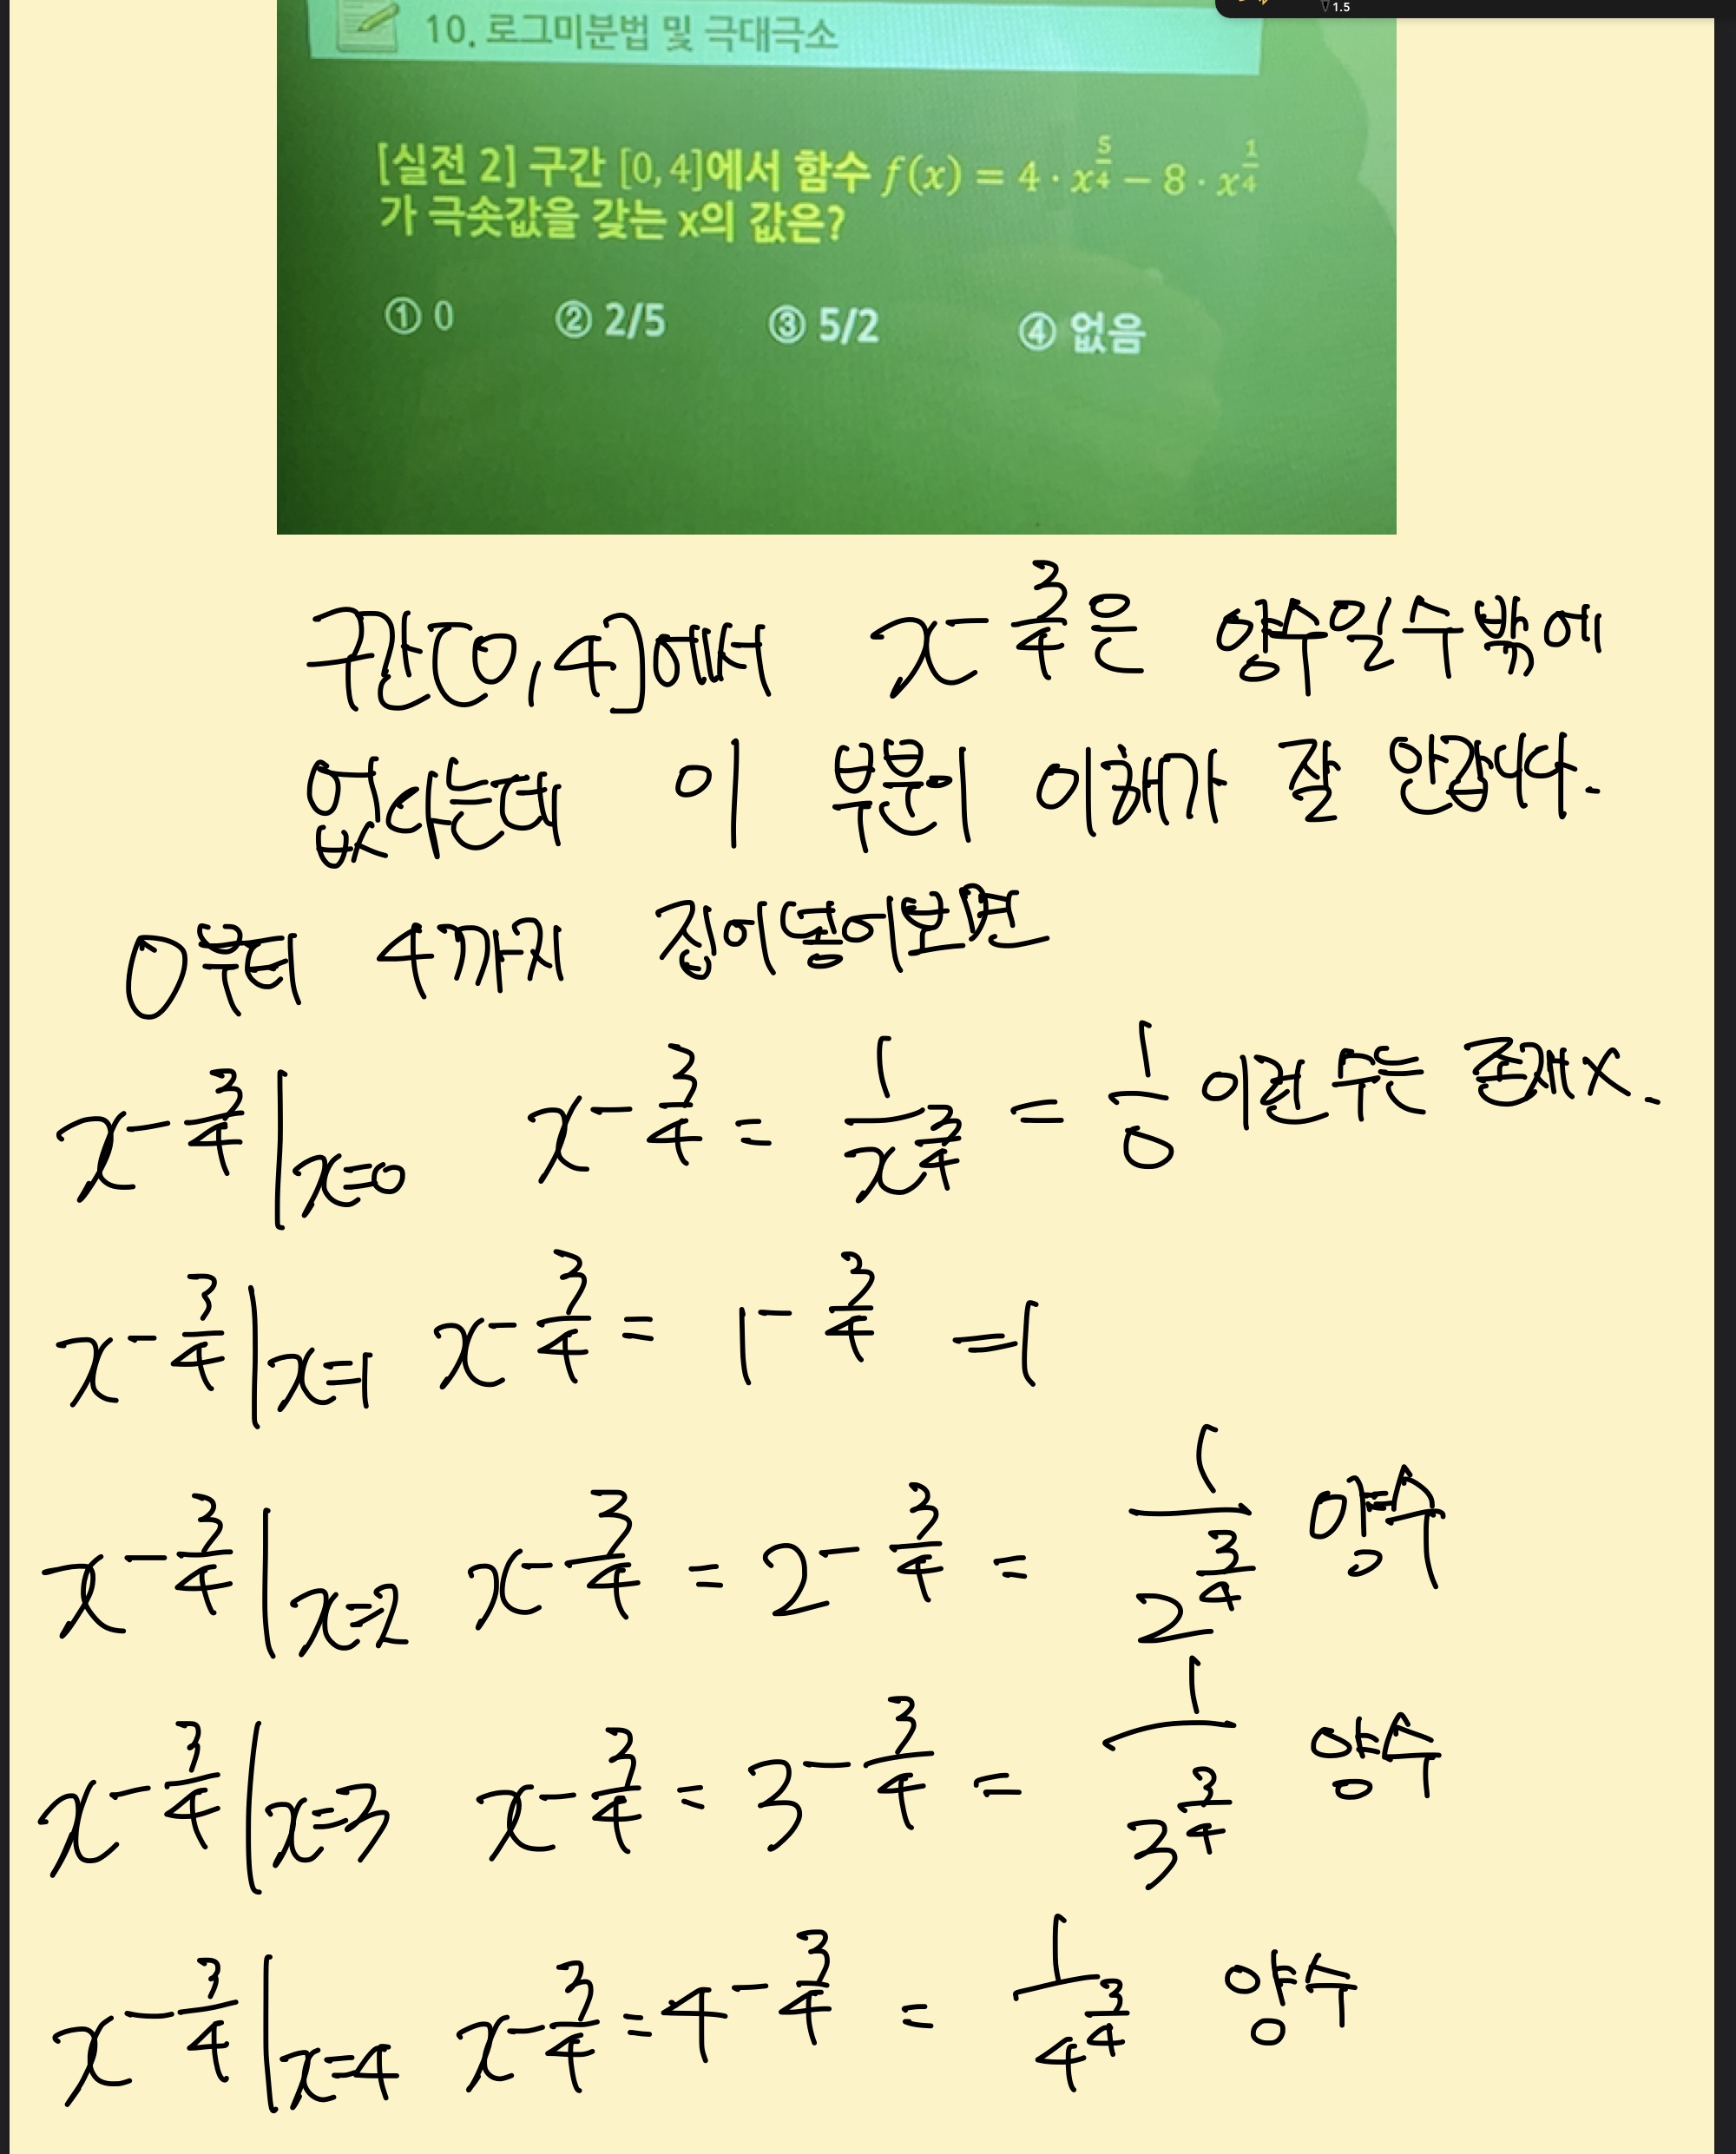 1.5
10. 로그미분법 및 극대극소
[실전 2] 구간 [0, 4]에서 함수 f(x) = 4 · x^(5/4) − 8 · x^(1/4)
가 극솟값을 갖는 x의 값은?
① 0 ② 2/5 ③ 5/2 ④ 없음
구간[0, 4]에서 x^(-3/4)은 양수일수밖에
없다는데 이 부분이 이해가 잘 안갑니다.
0부터 4까지 집어넣어보면
x^(-3/4)|x=0 x^(-3/4) = 1/x^(3/4) = 1/0 이런 수는 존재X.
x^(-3/4)|x=1 x^(-3/4) = 1^(-3/4) = 1
x^(-3/4)|x=2 x^(-3/4) = 2^(-3/4) = 1/2^(3/4) 양수
x^(-3/4)|x=3 x^(-3/4) = 3^(-3/4) = 1/3^(3/4) 양수
x^(-3/4)|x=4 x^(-3/4) = 4^(-3/4) = 1/4^(3/4) 양수